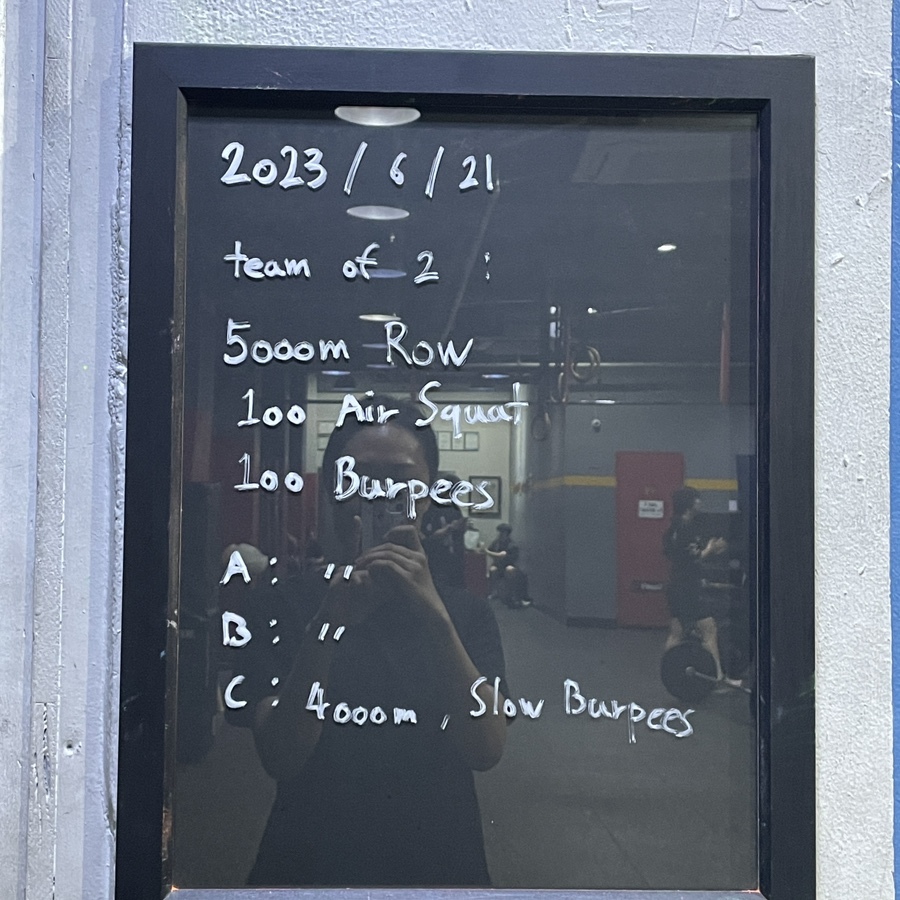 2023 / 6 / 21
team of 2 :
5000m Row
100 Air Squat
100 Burpees
A : "
B : "
C : 4000m , Slow Burpees